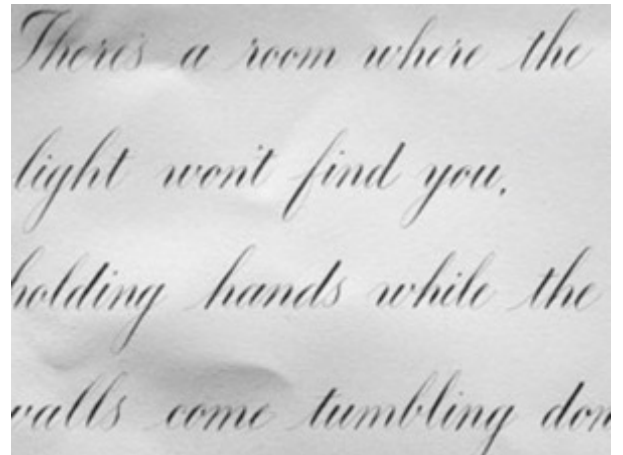 There's a room where the
light won't find you,
holding hands while the
walls come tumbling dow